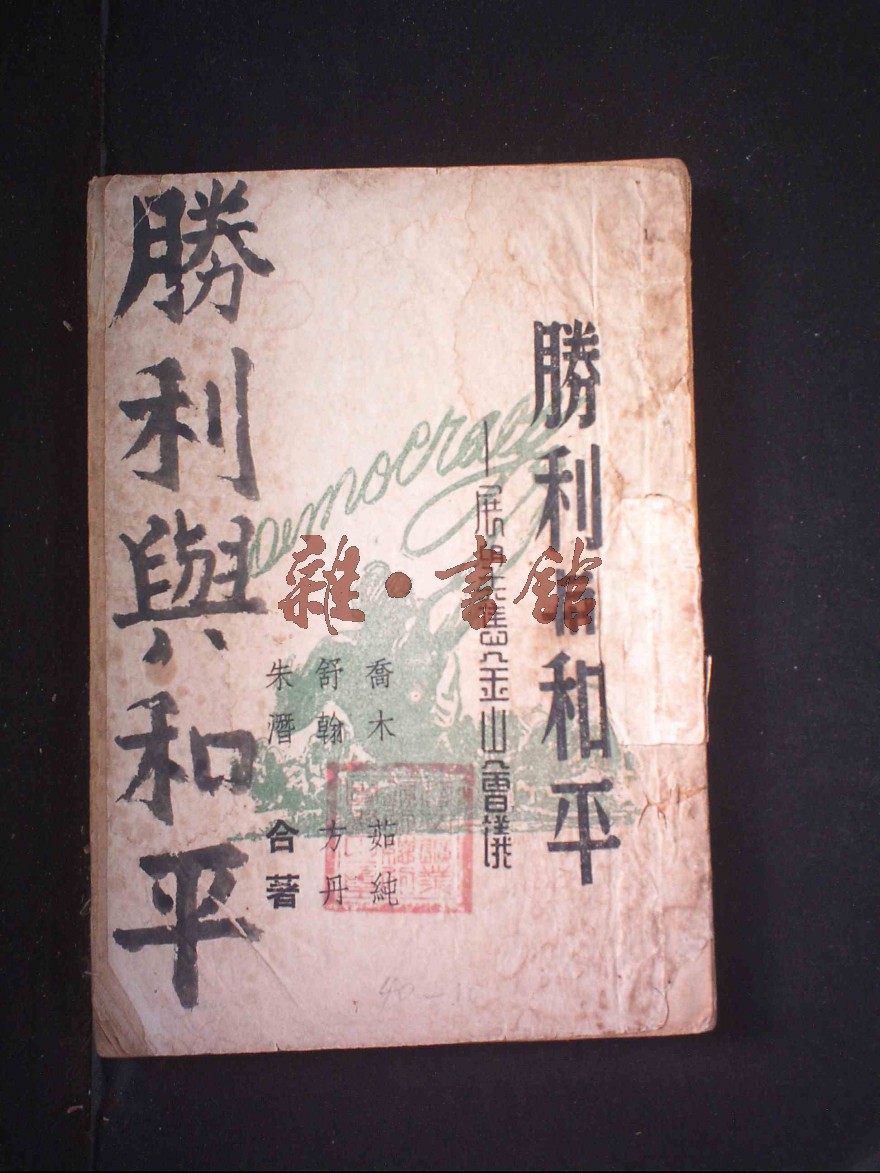 勝利 和平
—展 舊金山會議
喬木 茹純
舒翰 方丹
朱潛 合著
勝利與和平
Democracy
雜·書館